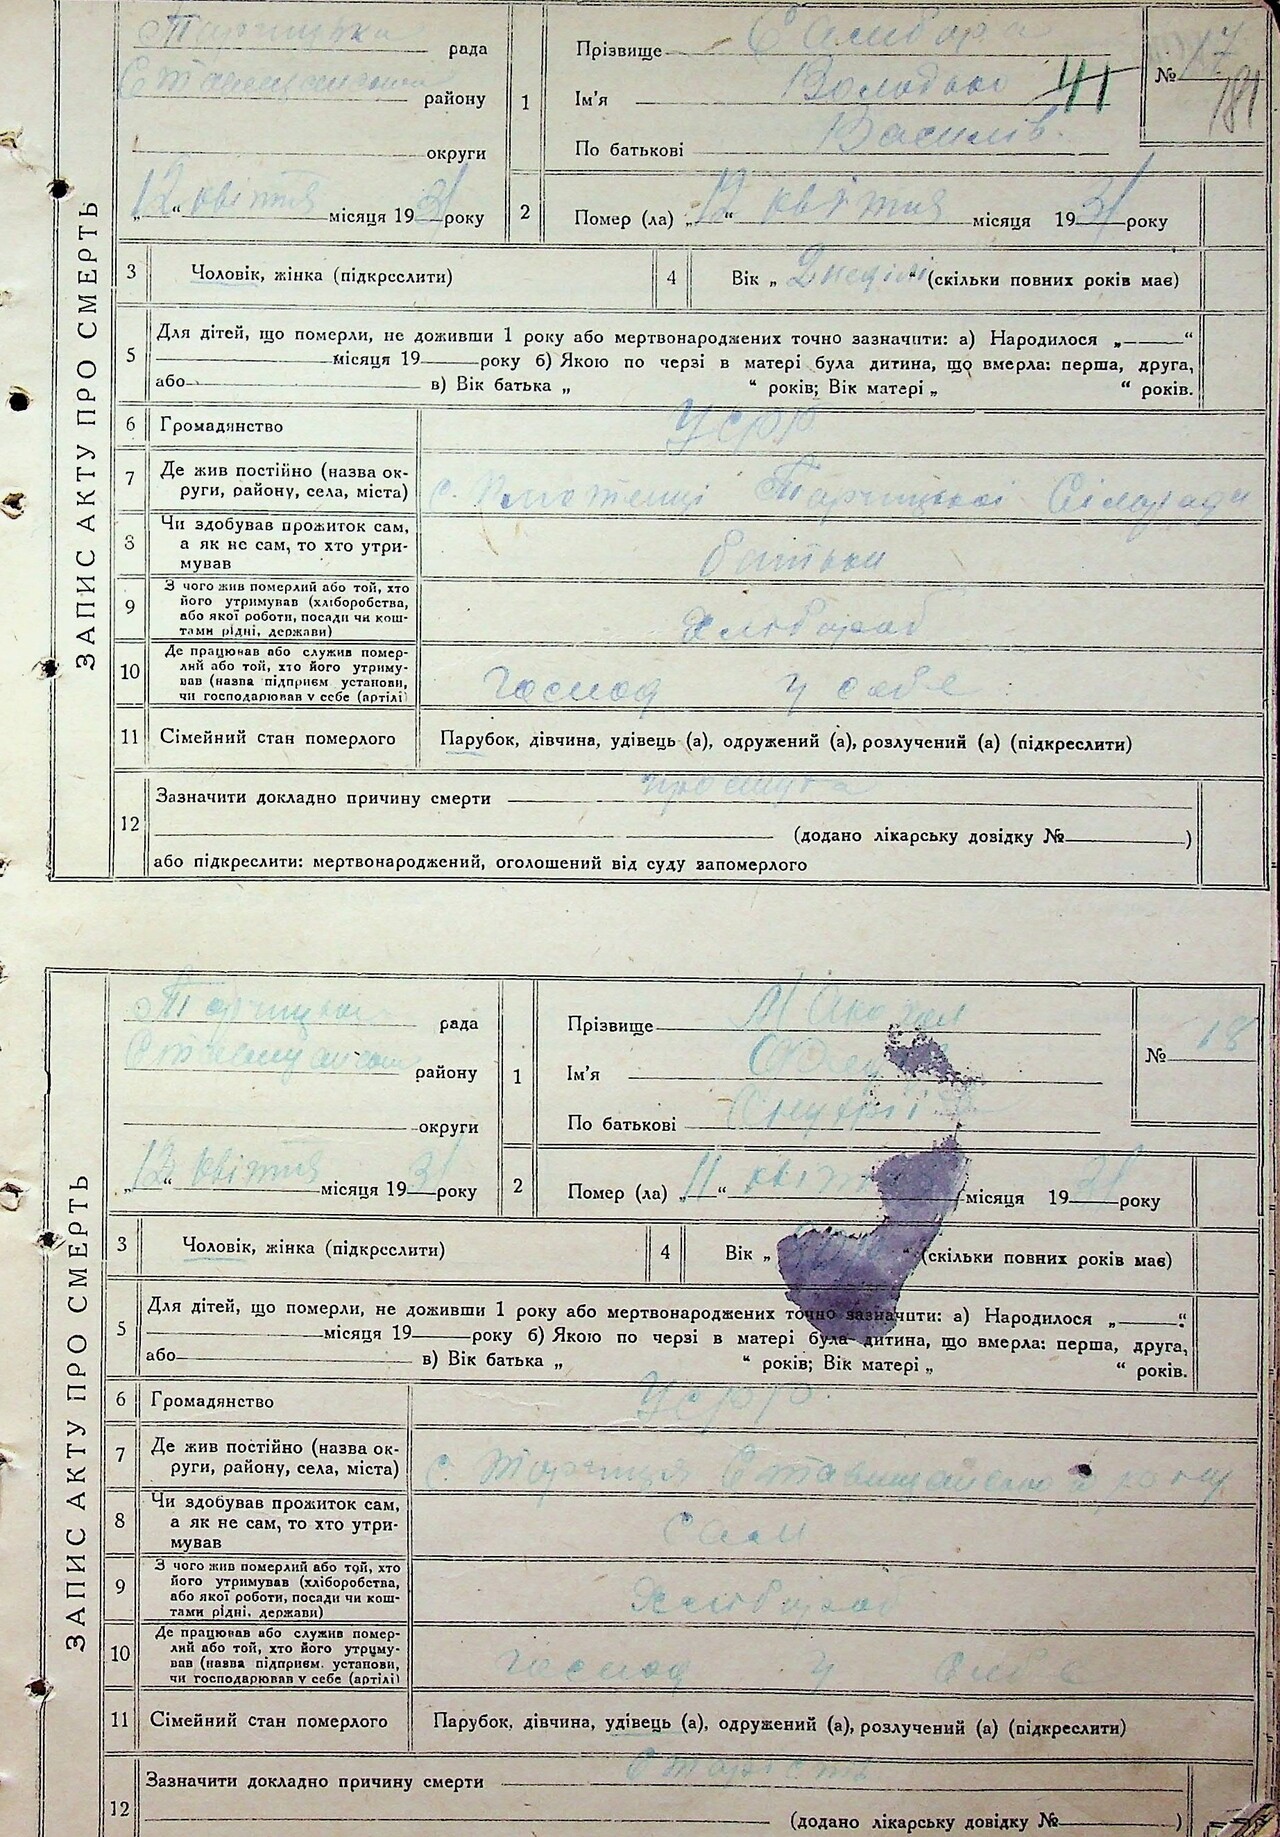 ЗАПИС АКТУ ПРО СМЕРТЬ
Торчицька рада
Ставищанського району
округи
„12“ квітня місяця 1931 року
1
Прізвище
Ім'я Володько
По батькові Василів.
41
№ 17
181
2 Помер (ла) „12“ квітня місяця 1931 року
3 Чоловік, жінка (підкреслити)
4 Вік „2 неділі“ (скільки повних років має)
5 Для дітей, що померли, не доживши 1 року або мертвонароджених точно зазначити: а) Народилося „ “
місяця 19 року б) Якою по черзі в матері була дитина, що вмерла: перша, друга,
або в) Вік батька „ “ років; Вік матері „ “ років.
6 Громадянство УСРР
7 Де жив постійно (назва округи, району, села, міста) с. Торчицької Сільради
8 Чи здобував прожиток сам,
а як не сам, то хто утримував батьки
9 З чого жив померлий або той, хто
його утримував (хліборобства,
або якої роботи, посади чи коштами рідні, держави) Хлібороб
10 Де працював або служив померлий або той, хто його утримував (назва підприєм установи,
чи господарював у себе (артілі) господ у себе
11 Сімейний стан померлого Парубок, дівчина, удівець (а), одружений (а), розлучений (а) (підкреслити)
12 Зазначити докладно причину смерти простуда
(додано лікарську довідку № )
або підкреслити: мертвонароджений, оголошений від суду запомерлого
ЗАПИС АКТУ ПРО СМЕРТЬ
Торчицька рада
Ставищанського району
округи
„12“ квітня місяця 1931 року
1
Прізвище
Ім'я
По батькові
№ 18
2 Помер (ла) „11“ квітня місяця 1931 року
3 Чоловік, жінка (підкреслити)
4 Вік „ “ (скільки повних років має)
5 Для дітей, що померли, не доживши 1 року або мертвонароджених точно зазначити: а) Народилося „ “
місяця 19 року б) Якою по черзі в матері була дитина, що вмерла: перша, друга,
або в) Вік батька „ “ років; Вік матері „ “ років.
6 Громадянство УСРР.
7 Де жив постійно (назва округи, району, села, міста) с. Торчиця Ставищанського р-ну
8 Чи здобував прожиток сам,
а як не сам, то хто утримував сам
9 З чого жив померлий або той, хто
його утримував (хліборобства,
або якої роботи, посади чи коштами рідні, держави) Хлібороб
10 Де працював або служив померлий або той, хто його утримував (назва підприєм. установи,
чи господарював у себе (артілі) господ у себе
11 Сімейний стан померлого Парубок, дівчина, удівець (а), одружений (а), розлучений (а) (підкреслити)
12 Зазначити докладно причину смерти старість
(додано лікарську довідку № )